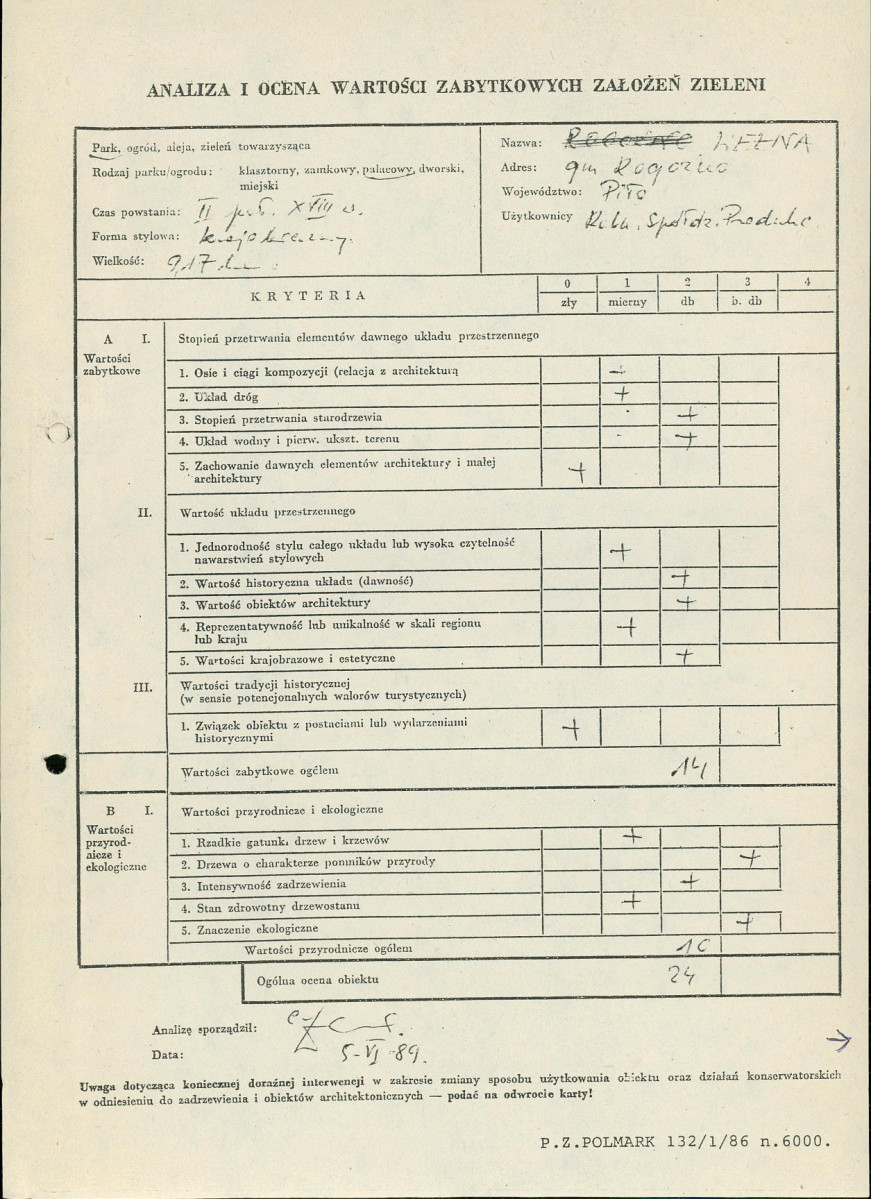 ANALIZA I OCENA WARTOŚCI ZABYTKOWYCH ZAŁOŻEŃ ZIELENI
Park, ogród, aleja, zieleń towarzysząca
Rodzaj parku/ogrodu: klasztorny, zamkowy, pałacowy, dworski,
miejski
Czas powstania: II poł. XVIII w.
Forma stylowa: krajobrazowy.
Wielkość: 9,17 ha
Nazwa:
Adres: gm Rogoźno
Województwo: Piła
Użytkownicy Roln. Spółdz. Produkc.
KRYTERIA
0 1 2 3 4
zły mierny db b. db
A I. Stopień przetrwania elementów dawnego układu przestrzennego
Wartości
zabytkowe
1. Osie i ciągi kompozycji (relacja z architekturą +
2. Układ dróg +
3. Stopień przetrwania starodrzewia +
4. Układ wodny i pierw. ukszt. terenu +
5. Zachowanie dawnych elementów architektury i małej
architektury +
II. Wartość układu przestrzennego
1. Jednorodność stylu całego układu lub wysoka czytelność
nawarstwień stylowych +
2. Wartość historyczna układu (dawność) +
3. Wartość obiektów architektury +
4. Reprezentatywność lub unikalność w skali regionu
lub kraju +
5. Wartości krajobrazowe i estetyczne +
III. Wartości tradycji historycznej
(w sensie potencjonalnych walorów turystycznych)
1. Związek obiektu z postaciami lub wydarzeniami
historycznymi +
Wartości zabytkowe ogółem 14
B I. Wartości przyrodnicze i ekologiczne
Wartości
przyrod-
nicze i
ekologiczne
1. Rzadkie gatunki drzew i krzewów +
2. Drzewa o charakterze pomników przyrody +
3. Intensywność zadrzewienia +
4. Stan zdrowotny drzewostanu +
5. Znaczenie ekologiczne +
Wartości przyrodnicze ogółem 10
Ogólna ocena obiektu 24
Analizę sporządził:
Data: 5-VI-89.
Uwaga dotycząca koniecznej doraźnej interwencji w zakresie zmiany sposobu użytkowania obiektu oraz działań konserwatorskich
w odniesieniu do zadrzewienia i obiektów architektonicznych — podać na odwrocie karty!
P.Z.POLMARK 132/1/86 n.6000.